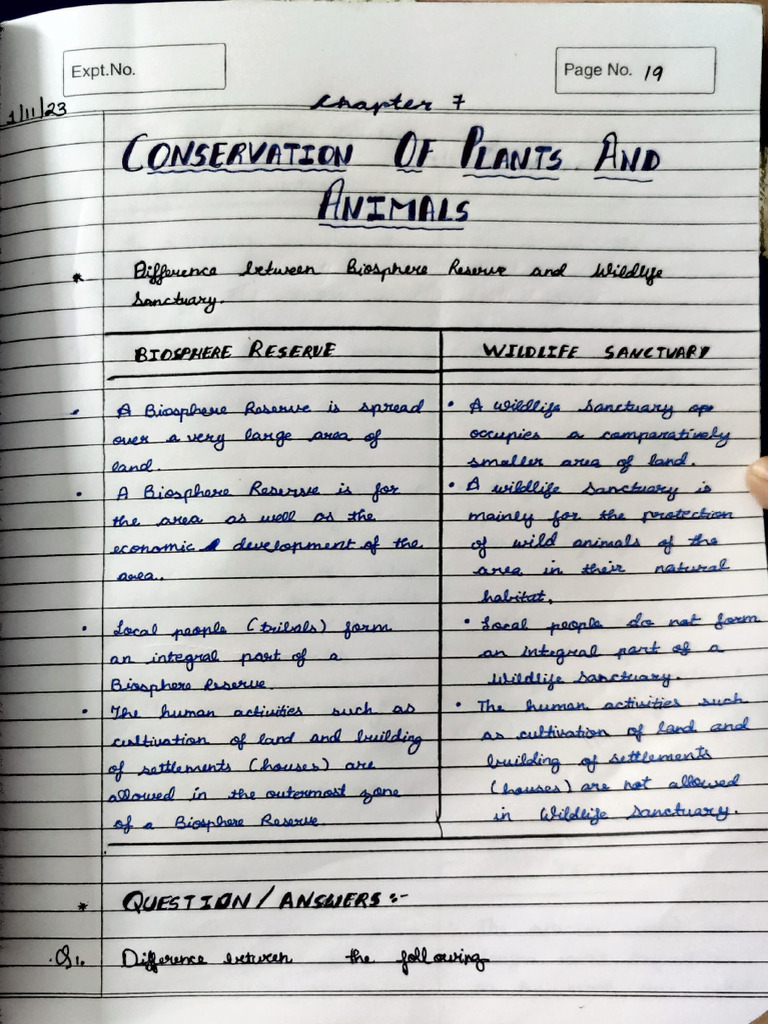 Expt.No.
Page No. 19
1/11/23
Chapter 7
CONSERVATION OF PLANTS AND
ANIMALS
* Difference between Biosphere Reserve and Wildlife
Sanctuary.
BIOSPHERE RESERVE
• A Biosphere Reserve is spread
over a very large area of
land.
• A Biosphere Reserve is for
the area as well as the
economic development of the
area.
• Local people (tribals) form
an integral part of a
Biosphere Reserve.
• The human activities such as
cultivation of land and building
of settlements (houses) are
allowed in the outermost zone
of a Biosphere Reserve.
WILDLIFE SANCTUARY
• A wildlife Sanctuary
occupies a comparatively
smaller area of land.
• A wildlife Sanctuary is
mainly for the protection
of wild animals of the
area in their natural
habitat.
• Local people do not form
an integral part of a
Wildlife Sanctuary.
• The human activities such
as cultivation of land and
building of settlements
(houses) are not allowed
in Wildlife Sanctuary.
* QUESTION/ANSWERS :-
Q1. Difference between the following